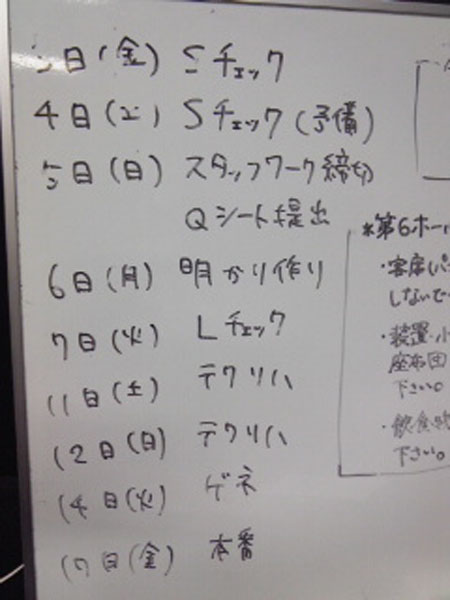 3日(金) Sチェック
4日(土) Sチェック(予備)
5日(日) スタッフワーク締切
Qシート提出
6日(月) 明かり作り
7日(火) Lチェック
11日(土) テクリハ
12日(日) テクリハ
14日(火) ゲネ
17日(金) 本番
*第6ホー
・客席(パ
しないで
・装置・小
座布団
下さい。
・飲食物
下さい。